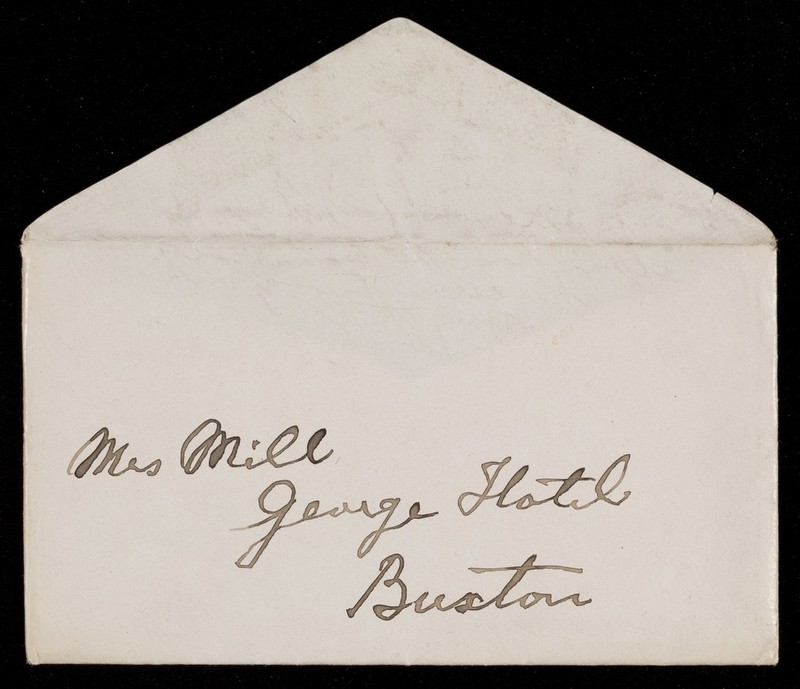 Mrs Mill
George Hotel
Buxton